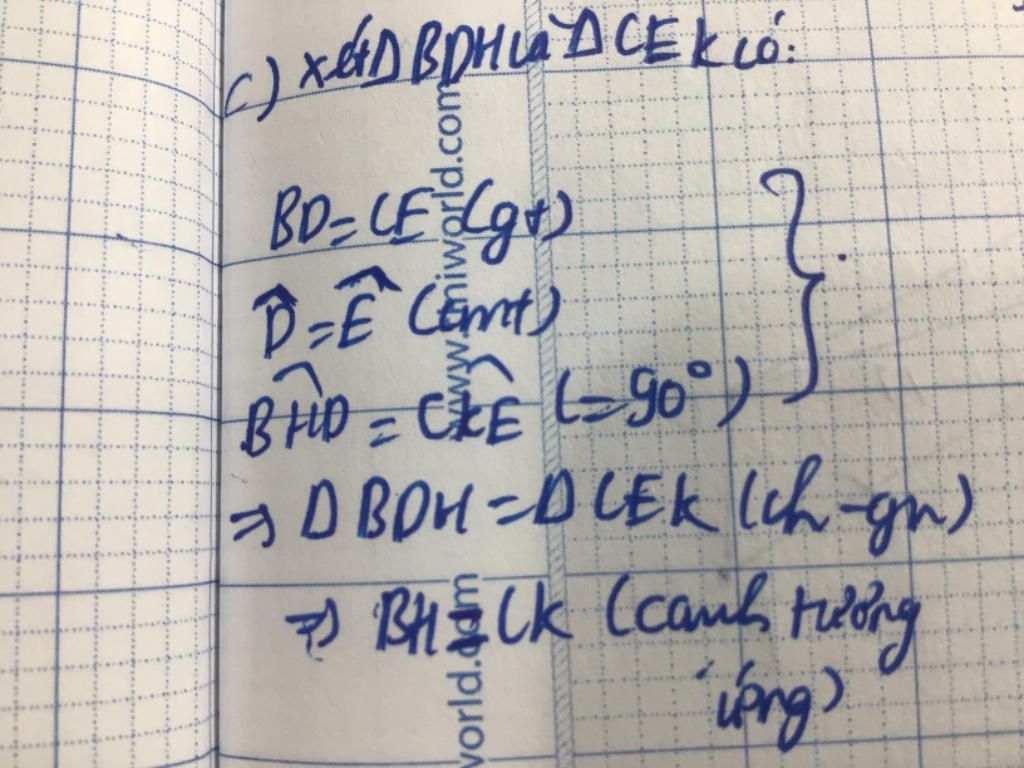 c) xét Δ BDH và Δ CEK có:
BD = CE (gt)
D̂ = Ê (cmt)
BĤD = CK̂E (=90°)
⇒ Δ BDH = Δ CEK (ch-gn)
⇒ BH = CK (cạnh tương
ứng)
www.miniworld.com
world.com